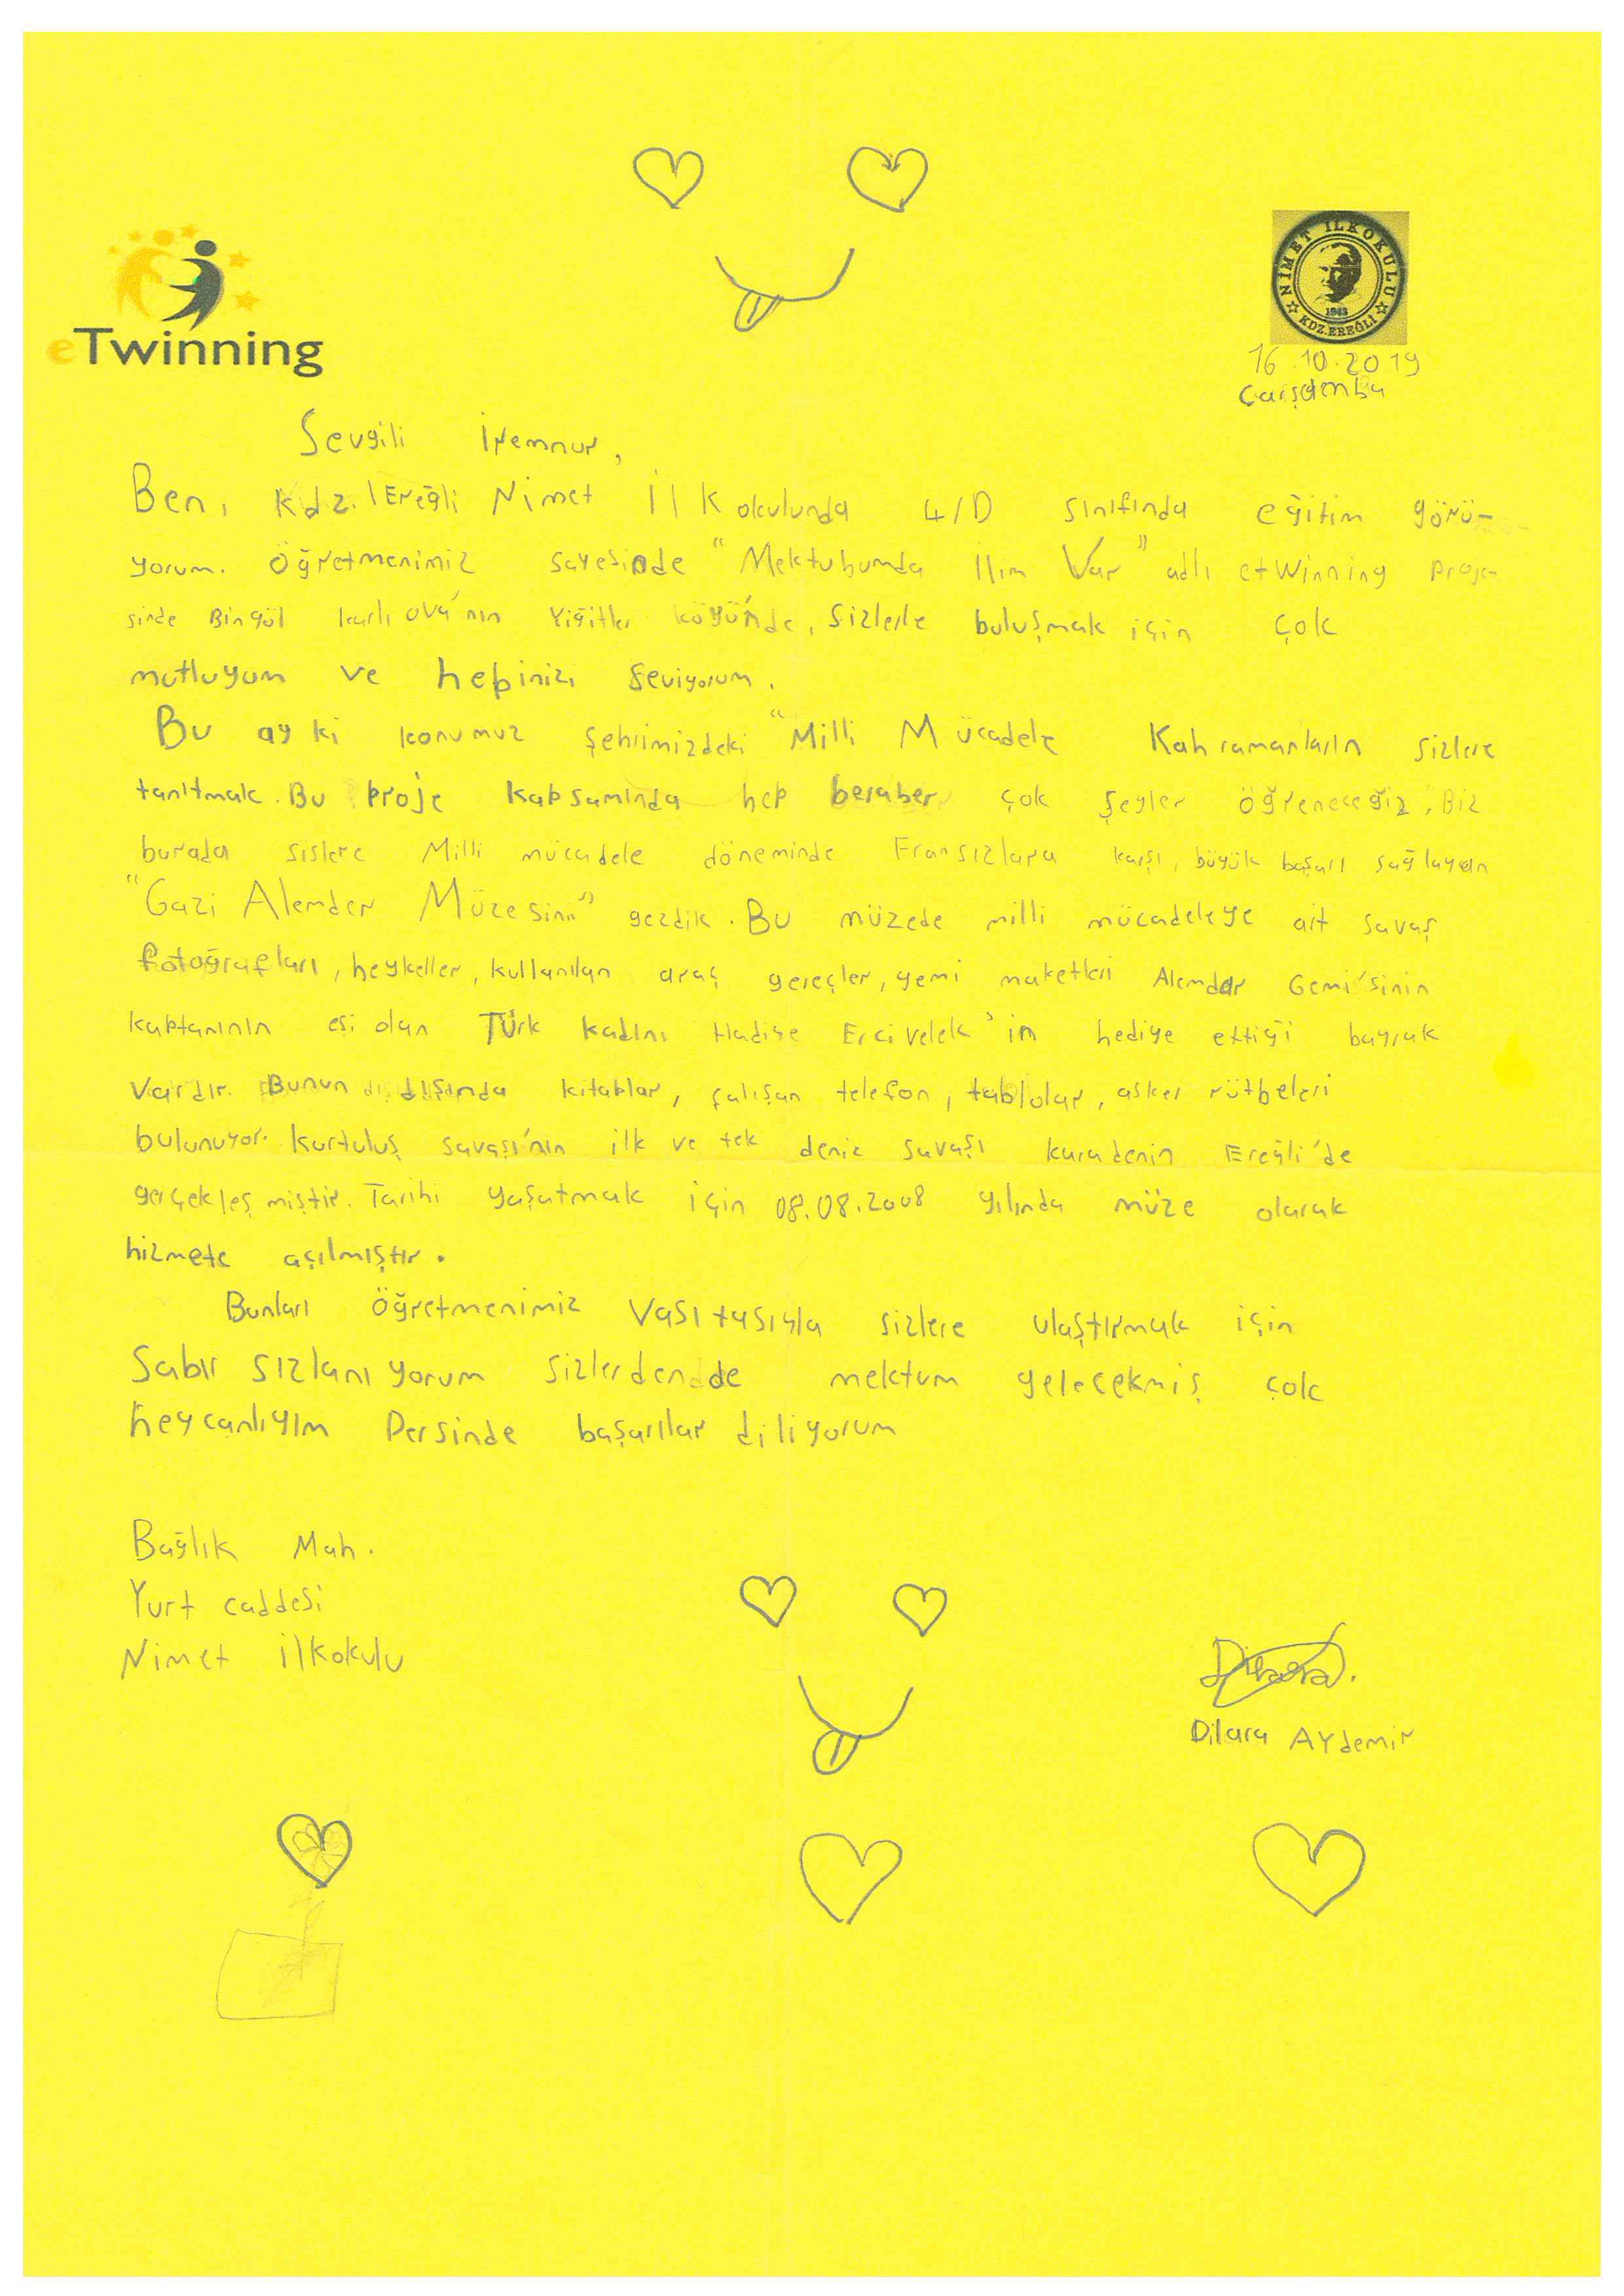 eTwinning
NİMET İLKOKULU
1943
KDZ.EREĞLİ
16.10.2019
Çarşamba
Sevgili İremnur,
Ben, Kdz. Ereğli Nimet İlkokulunda 4/D sınıfında eğitim görü-
yorum. Öğretmenimiz sayesinde "Mektubumda İlim Var" adlı etwinning proje-
sinde Bingöl karlı ova'nın Yiğitler köyü'nde, sizlerle buluşmak için çok
mutluyum ve hepinizi seviyorum.
Bu ay ki konumuz şehrimizdeki "Milli Mücadele Kahramanların sizlere
tanıtmak. Bu proje kapsamında hep beraber çok şeyler öğreneceğiz. Biz
burada sislere Milli mücadele döneminde Fransızlara karşı, büyük başarı sağlayan
"Gazi Alemder Müzesini" gezdik. Bu müzede milli mücadeleye ait savaş
fotoğrafları, heykeller, kullanılan araç gereçler, gemi maketleri Alemdar Gemi'sinin
kaptanının eşi olan Türk kadını Hadiye Ercivelek'in hediye ettiği bayrak
vardır. Bunun dışında kitaplar, çalışan telefon, tablolar, asker rütbeleri
bulunuyor. Kurtuluş savaşı'nın ilk ve tek deniz savaşı karadenin Ereğli'de
gerçekleşmiştir. Tarihi yaşatmak için 08.08.2008 yılında müze olarak
hizmete açılmıştır.
Bunları öğretmenimiz vasıtasıyla sizlere ulaştırmak için
Sabır sızlanıyorum sizlerdende mektum gelecekmiş çok
heycanlıyım Dersinde başarılar diliyorum
Bağlık Mah.
Yurt caddesi
Nimet ilkokulu
Dilara.
Dilara Aydemir